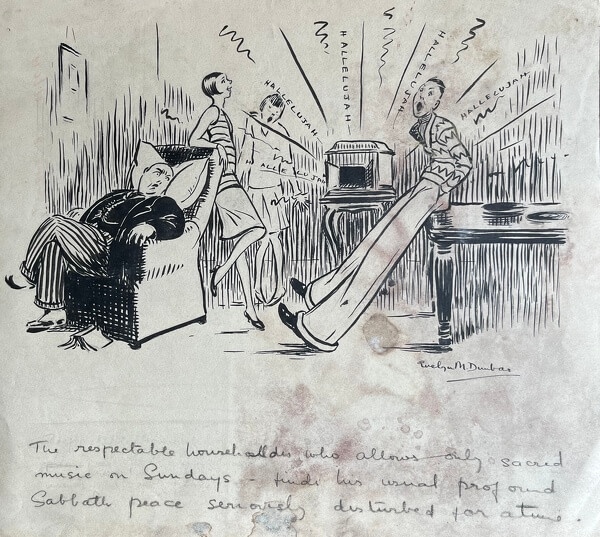 HALLELUJAH
HALLELUJAH
HALLELUJAH
HALLELUJAH
ALLELUJAH
Evelyn M. Dunbar
The respectable householder who allows only sacred
music on Sundays - finds his usual profound
Sabbath peace seriously disturbed for a time.